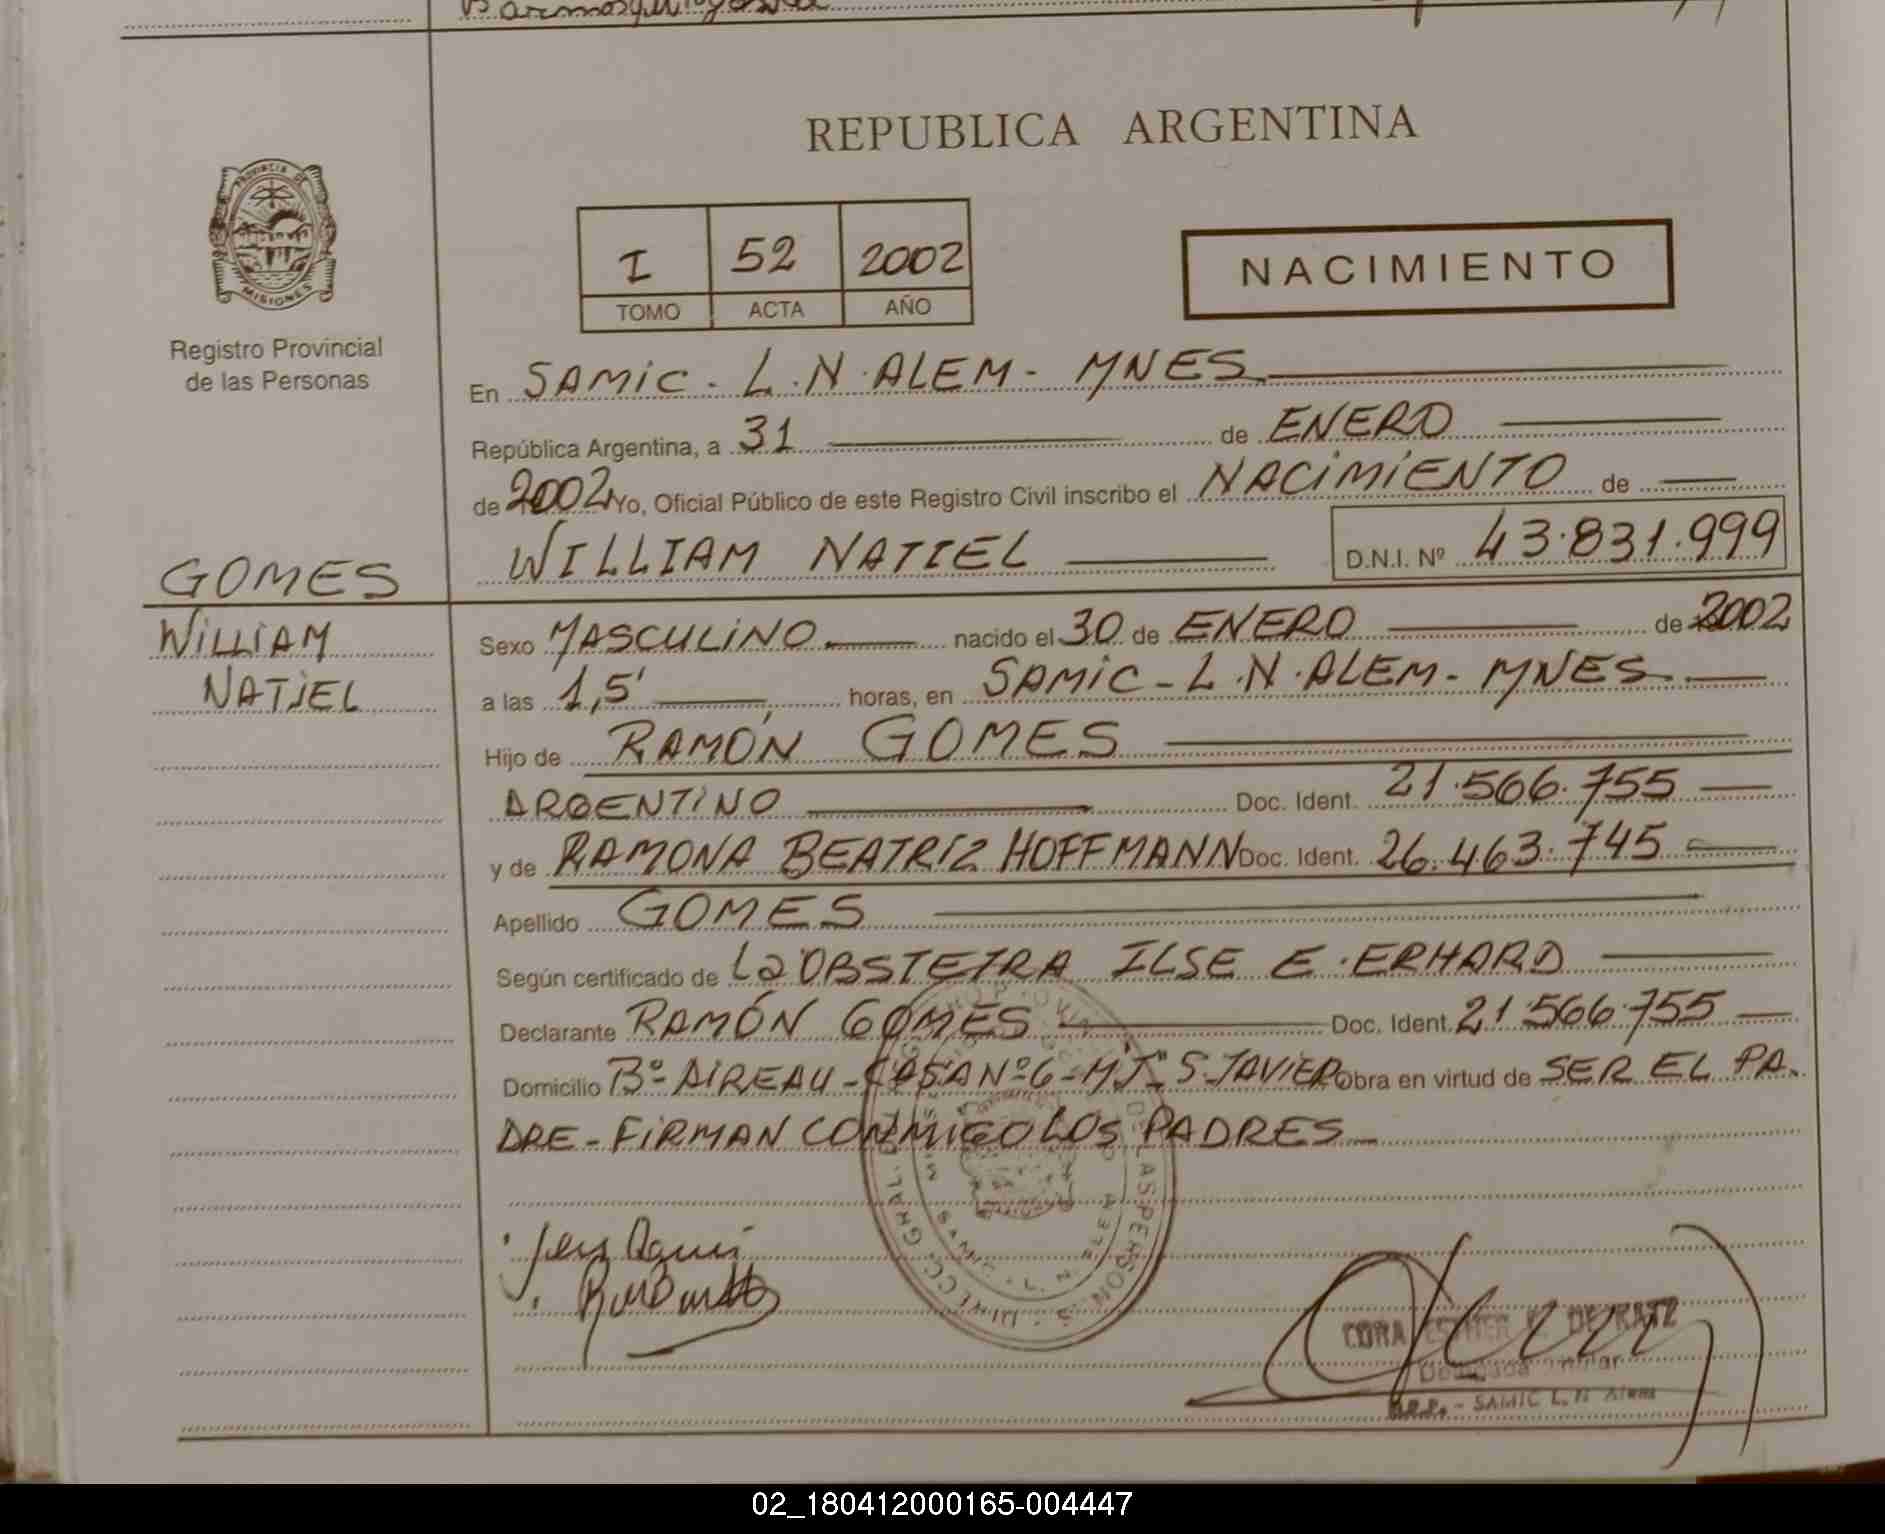 REPUBLICA ARGENTINA
PROVINCIA DE
MISIONES
Registro Provincial
de las Personas
I 52 2002
TOMO ACTA AÑO
NACIMIENTO
En SAMIC - L.N. ALEM - MNES
República Argentina, a 31 de ENERO
de 2002 Yo, Oficial Público de este Registro Civil inscribo el NACIMIENTO de
WILLIAM NATIEL D.N.I. Nº 43.831.999
GOMES
WILLIAM
NATIEL
Sexo MASCULINO nacido el 30 de ENERO de 2002
a las 1,5' horas, en SAMIC - L.N. ALEM - MNES
Hijo de RAMÓN GOMES
ARGENTINO Doc. Ident. 21.566.755
y de RAMONA BEATRIZ HOFFMANN Doc. Ident. 26.463.745
Apellido GOMES
Según certificado de La OBSTETRA ILSE E. ERHARD
Declarante RAMÓN GOMES Doc. Ident. 21.566.755
Domicilio Bº AIREAU - CASA Nº 6 - S. JAVIER Obra en virtud de SER EL PA-
DRE - FIRMAN CONMIGO LOS PADRES
CORA ESTHER DE KATZ
Delegada Titular
R.P.P. - SAMIC L.N. Alem
02_180412000165-004447